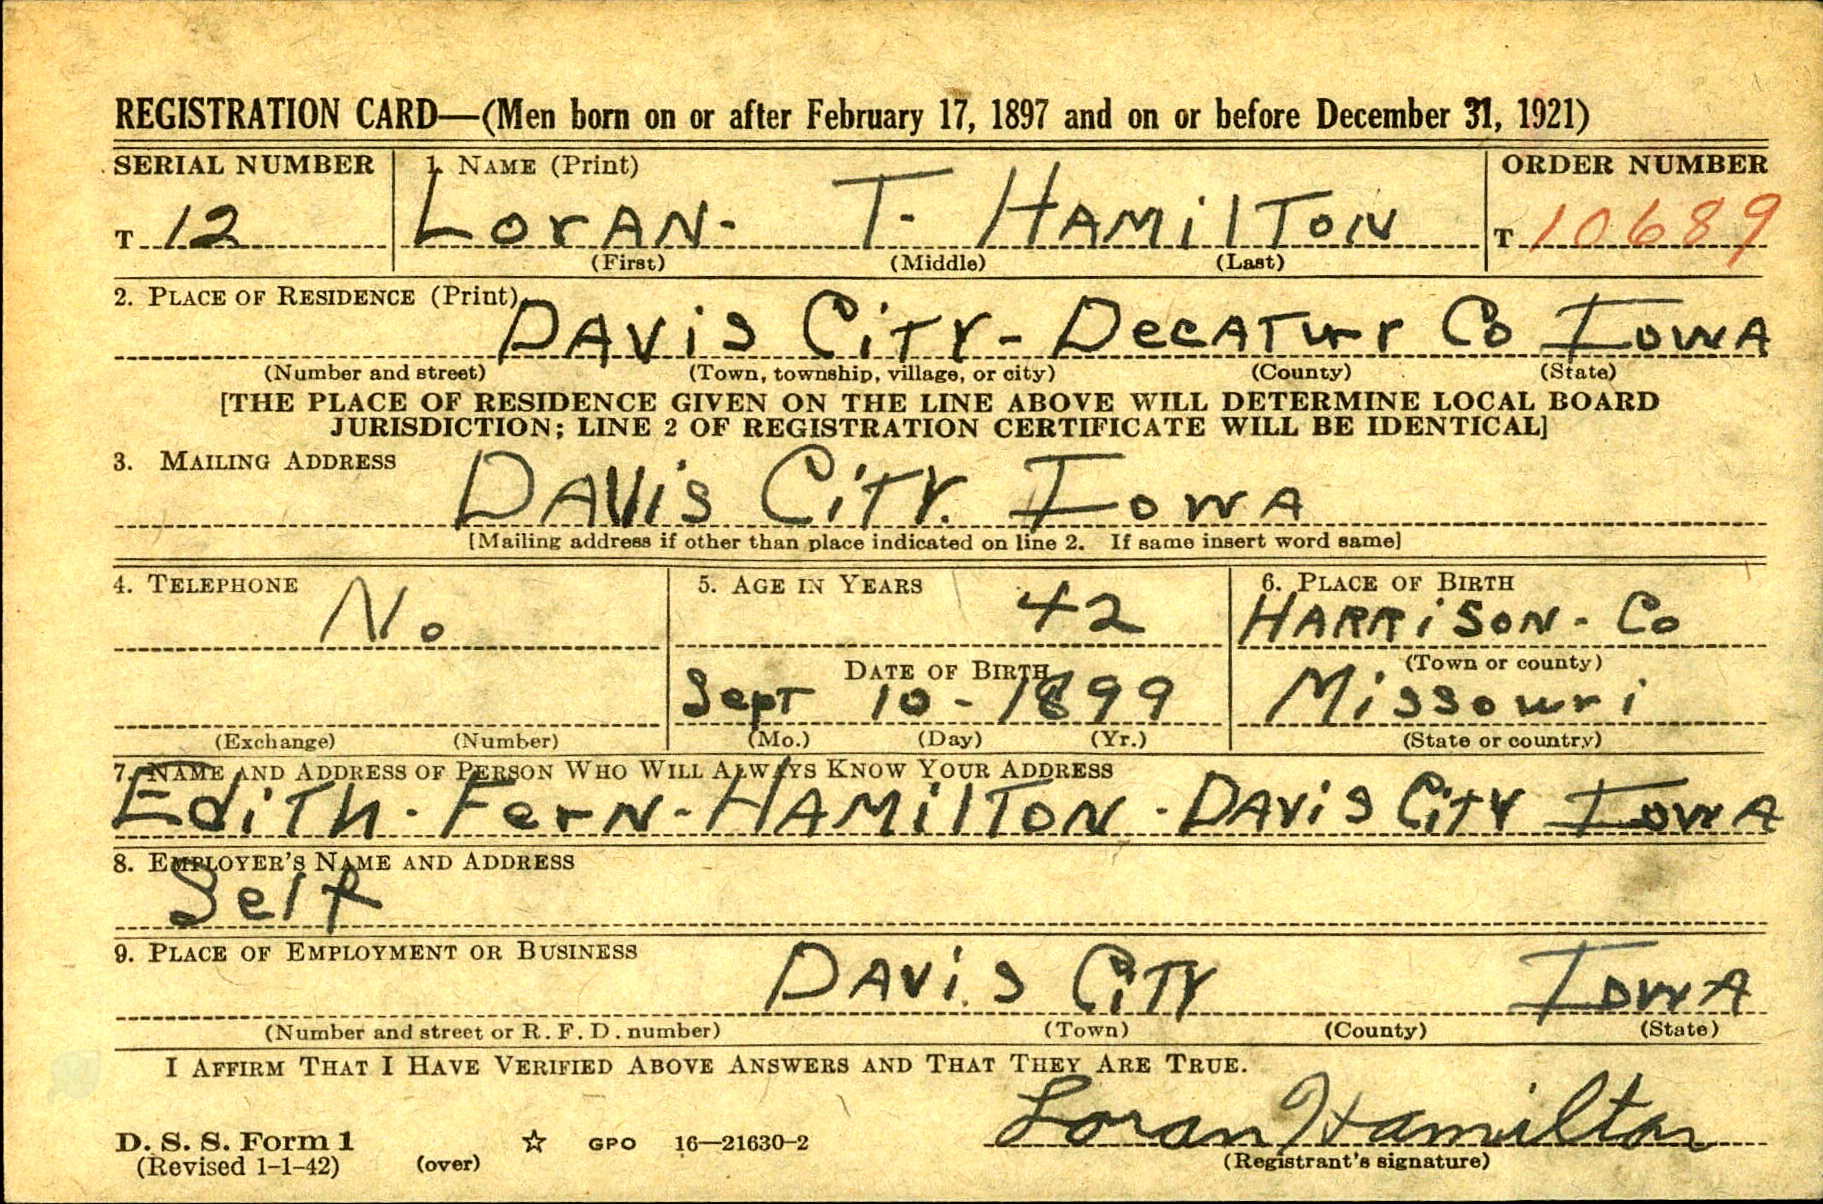 REGISTRATION CARD—(Men born on or after February 17, 1897 and on or before December 31, 1921)
SERIAL NUMBER 1. NAME (Print) ORDER NUMBER
T 12 LorAN- T- HAMilTON T 10689
(First) (Middle) (Last)
2. PLACE OF RESIDENCE (Print)
DAViS CiTY - DecATur Co IowA
(Number and street) (Town, township, village, or city) (County) (State)
[THE PLACE OF RESIDENCE GIVEN ON THE LINE ABOVE WILL DETERMINE LOCAL BOARD
JURISDICTION; LINE 2 OF REGISTRATION CERTIFICATE WILL BE IDENTICAL]
3. MAILING ADDRESS DAViS CiTY. IowA
[Mailing address if other than place indicated on line 2. If same insert word same]
4. TELEPHONE 5. AGE IN YEARS 6. PLACE OF BIRTH
No 42 HARRiSON - Co
DATE OF BIRTH (Town or county)
Sept 10 - 1899 Missouri
(Exchange) (Number) (Mo.) (Day) (Yr.) (State or country)
7. NAME AND ADDRESS OF PERSON WHO WILL ALWAYS KNOW YOUR ADDRESS
EdiTh - FerN - HAMilTON - DAViS CiTY IowA
8. EMPLOYER'S NAME AND ADDRESS
Self
9. PLACE OF EMPLOYMENT OR BUSINESS
DAViS CiTY IowA
(Number and street or R. F. D. number) (Town) (County) (State)
I AFFIRM THAT I HAVE VERIFIED ABOVE ANSWERS AND THAT THEY ARE TRUE.
Loran Hamilton
D. S. S. Form 1 ☆ GPO 16—21630-2
(Revised 1-1-42) (over) (Registrant's signature)